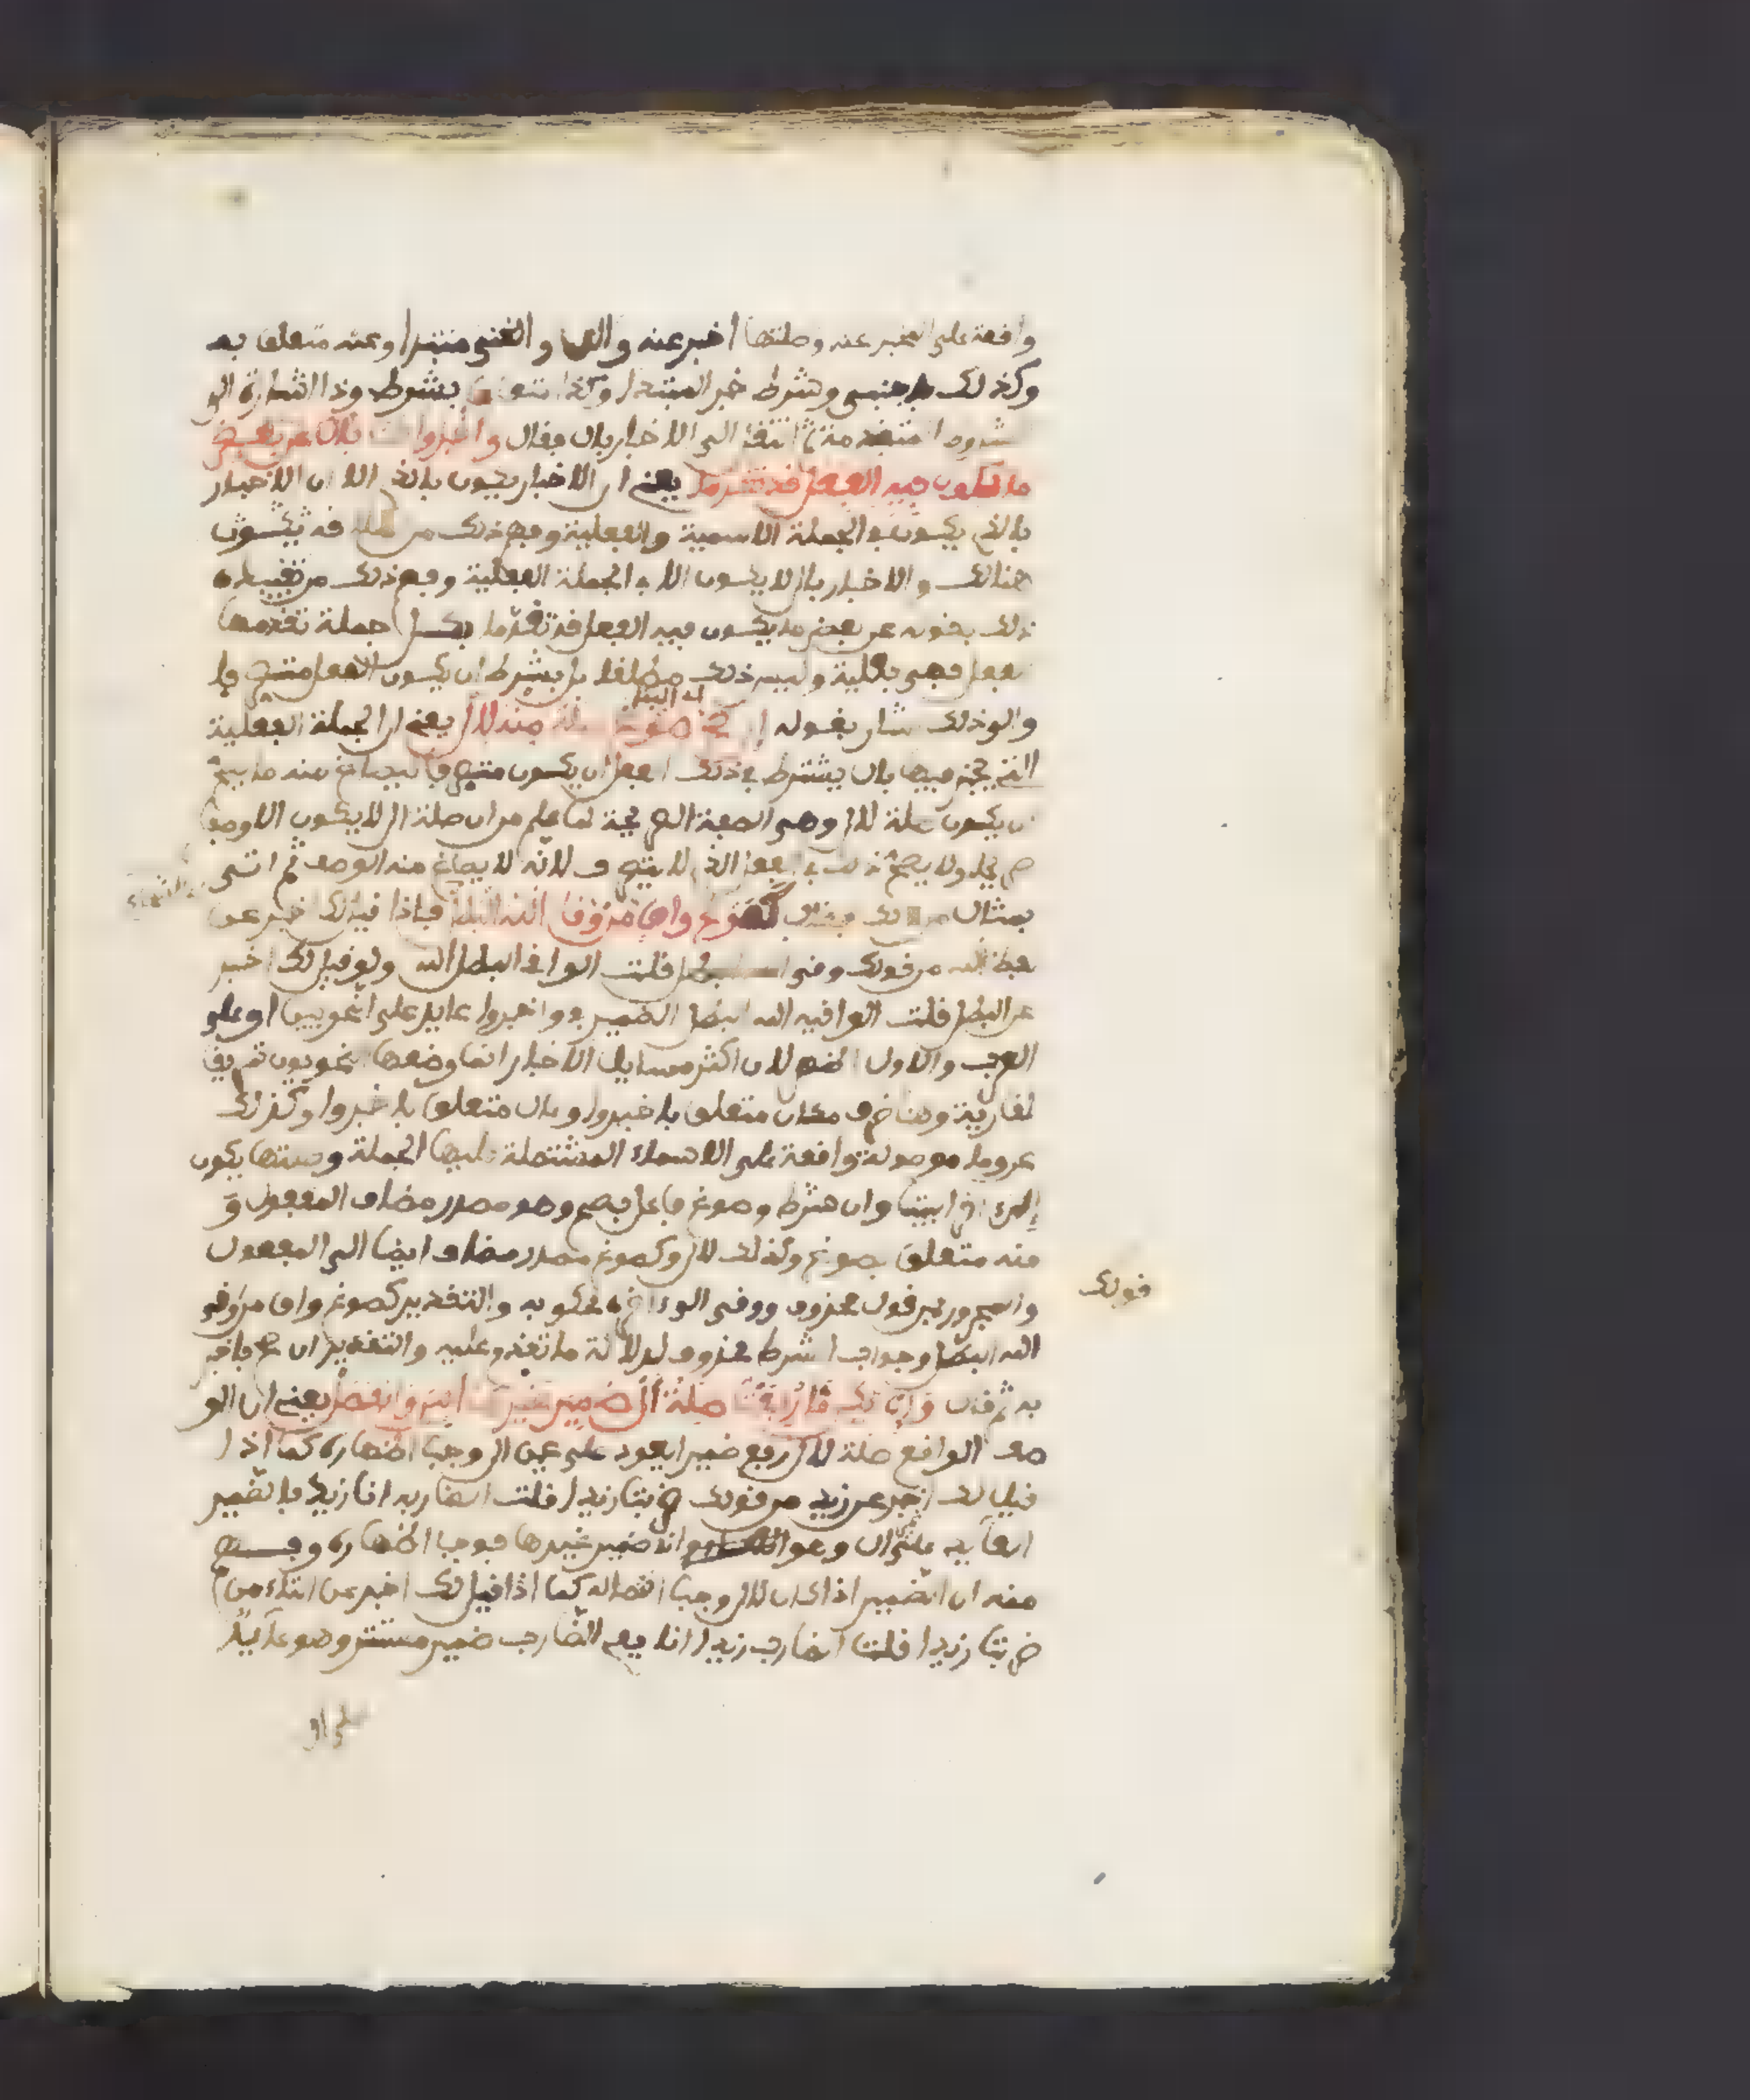 واقعة على المخبر عنه وصلتها اخبر عنه والها والغنى مبتدا وعنه متعلق به
وكذلك باجنبي وشرط خبر المبتدا وكذا متعلق بشرط وذا اشارة الى
شروط متقدمة ثم انتقل الى الاخبار بال فقال واخبروا هنا بال عن بعض
ما يكون فيه الفعل قد تقدما يعني ان الاخبار يكون بالذي الا ان الاخبار
بالذي يكون في الجملة الاسمية والفعلية وفهم ذلك من قد يكون
هنالك والاخبار بال لا يكون الا في الجملة الفعلية وفهم ذلك من تقييده
ذلك بقوله عن بعض ما يكون فيه الفعل قد تقدما فكل جملة تقدمها
فعل فهي فعلية وليس ذلك مطلقا بل بشرط ان يكون الفعل متصرفا
والى ذلك اشار بقوله ان صح صوغ صلة منه لال يعني ان الجملة الفعلية
التي يخبر فيها بال يشترط في ذلك الفعل ان يكون متصرفا ليصاغ منه ما يصح
ان يكون صلة لال وهي الصفة الصريحة لما علم من ان صلة ال لا يكون الا وصفا
صريحا ولا يصح ذلك في الفعل الذي لا يتصرف لانه لا يصاغ منه الوصف ثم اتى
بمثال من ذلك فقال كصوغ واق من وقى الله البطل فاذا قيل لك اخبر عن
لفظ الله من قولك وقى الله البطل قلت الواقي البطل الله ولو قيل لك اخبر
عن البطل قلت الواقيه الله البطل الضمير في واخبروا عايد على النحويين او على
العرب والاول اظهر لان اكثر مسايل الاخبار انما وضعها النحويون تدريبا
للقارية وهنا ظرف مكان متعلق باخبروا وبال متعلق باخبروا وكذلك
عن وما موصولة واقعة على الاسماء المشتملة عليها الجملة وصلتها يكون
الى اخر البيت وان شرط وصوغ فاعل بصح وهو مصدر مضاف المفعول و
منه متعلق بصوغ وكذلك لال وكصوغ مصدر مضاف ايضا الى المفعول
والمجرور من قول محذوف ووقى الى اخره محكي به والتقدير كصوغ واق من وقى
قولك
الله البطل وجواب الشرط محذوف لدلالة ما تقدم عليه والتقدير ان صح فاخبر
به ثم قال وان يكن ما رفعت صلة ال ضمير غيرها ابين وانفصل يعني ان الو
صف الواقع صلة لال ان رفع ضميرا يعود على غير ال وجب اظهاره كما اذا
قيل لك اخبر عن زيد من قولك ضربت زيدا قلت الضاربه انا زيد فالضمير
منه ان الضمير اذا كان لال وجب اتصاله كما اذا قيل لك اخبر عن التاء من
ضربت زيدا قلت الضارب زيدا انا ففي الضارب ضمير مستتر وهو عايد
على ال